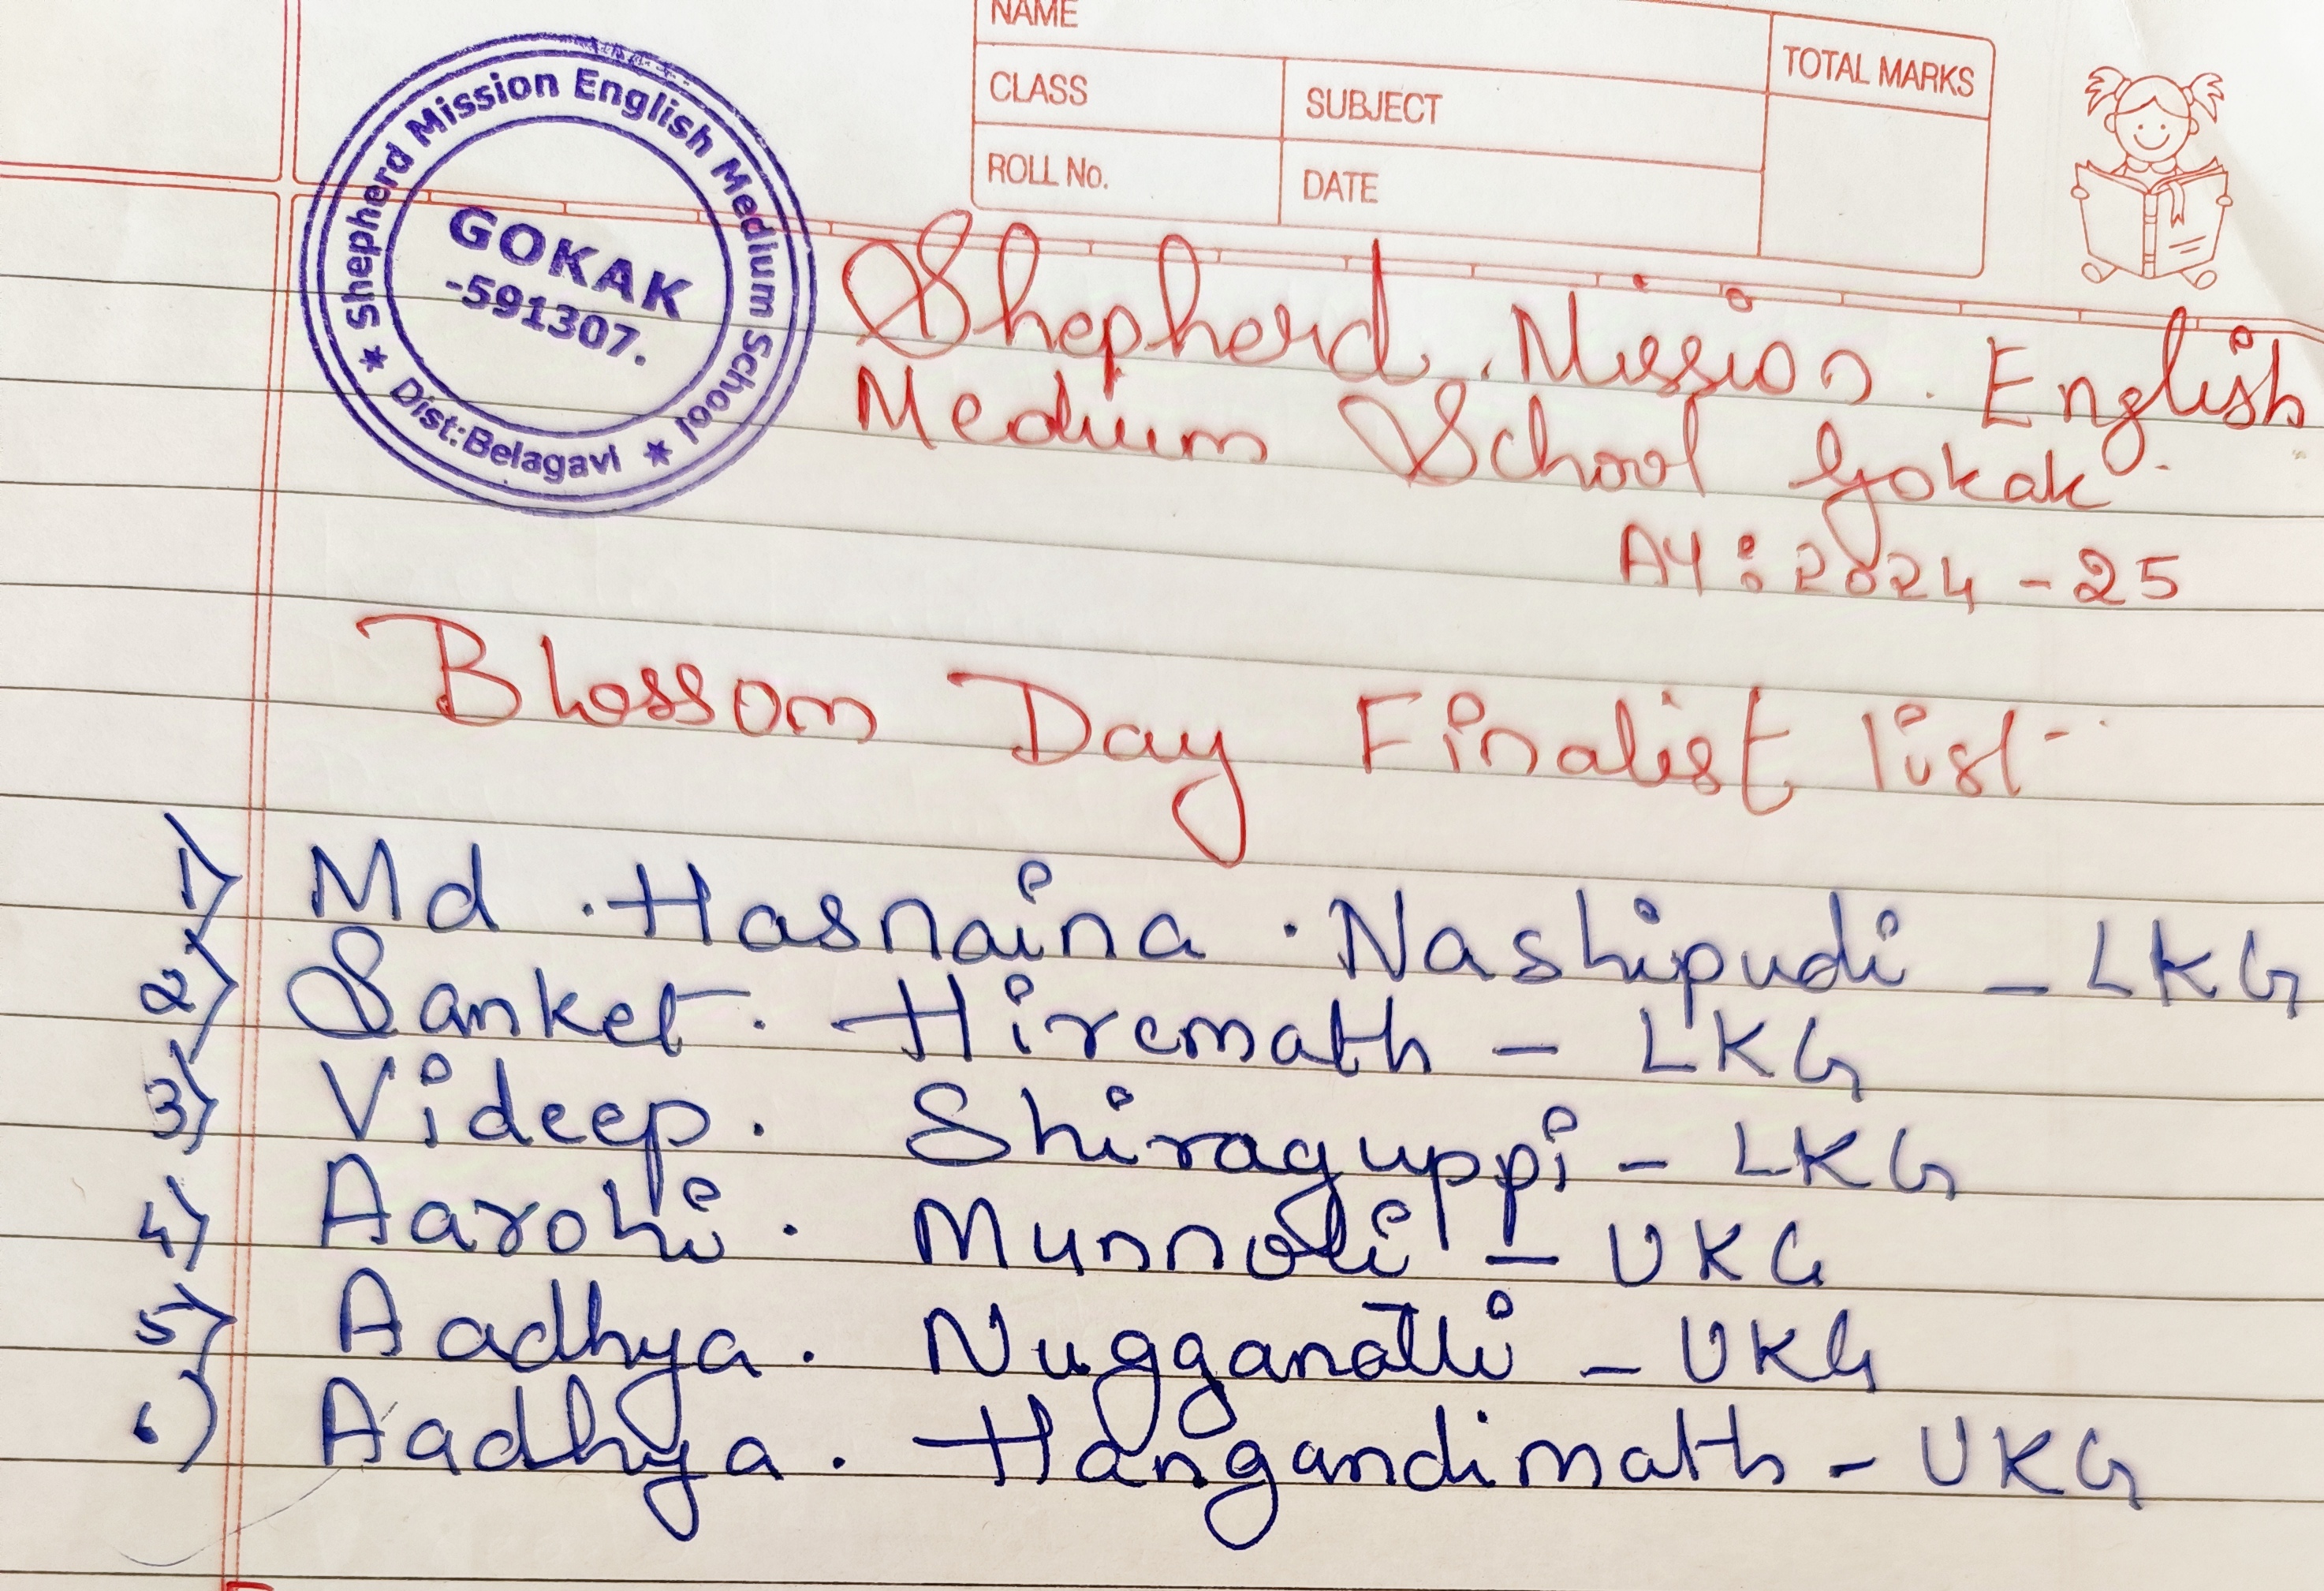 NAME
TOTAL MARKS
CLASS
SUBJECT
ROLL No.
DATE
Shepherd Mission English Medium School
GOKAK
-591307.
Dist:Belagavi
Shepherd . Mission . English
Medium School Gokak
AY : 2024 - 25
Blossom Day Finalist list
1) Md . Hasnaina . Nashipudi - LKG
2) Sanket . Hiremath - LKG
3) Videep . Shiraguppi - LKG
4) Aarohi . Munnoli - UKG
5) Aadhya . Nugganatti - UKG
6) Aadhya . Hangandimath - UKG